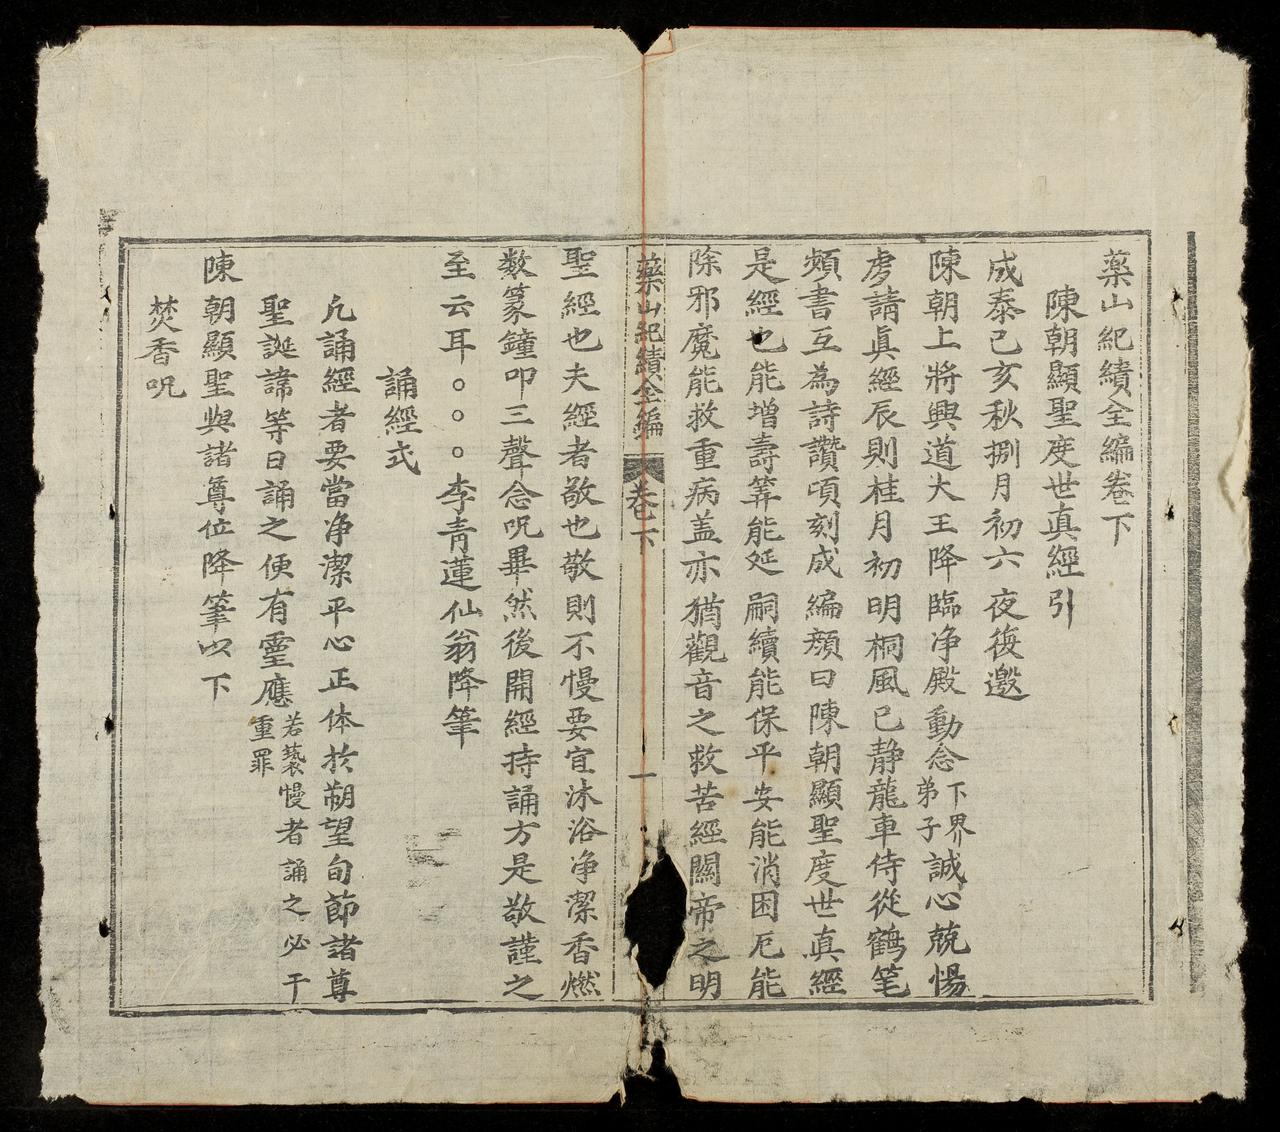 藥山紀績全編卷下
陳朝顯聖度世真經引
成泰己亥秋捌月初六夜復邀
陳朝上將興道大王降臨净殿動念下界弟子誠心兢惕
虔請眞經辰則桂月初明桐風已静龍車侍從鶴笔
頻書互為詩讚頃刻成編顏曰陳朝顯聖度世真經
是經也能增壽筭能延嗣續能保平安能消困厄能
除邪魔能救重病盖亦猶觀音之救苦經關帝之明
藥山紀績全編 卷下 一
聖經也夫經者敬也敬則不慢要宜沐浴净潔香燃
数篆鐘叩三聲念呪畢然後開經持誦方是敬謹之
至云耳。。。李青蓮仙翁降筆
誦經式
凡誦經者要當净潔平心正体於朔望旬節諸尊
聖誕諱等日誦之便有靈應若褻慢者誦之必干重罪
陳朝顯聖與諸尊位降筆以下
焚香呪